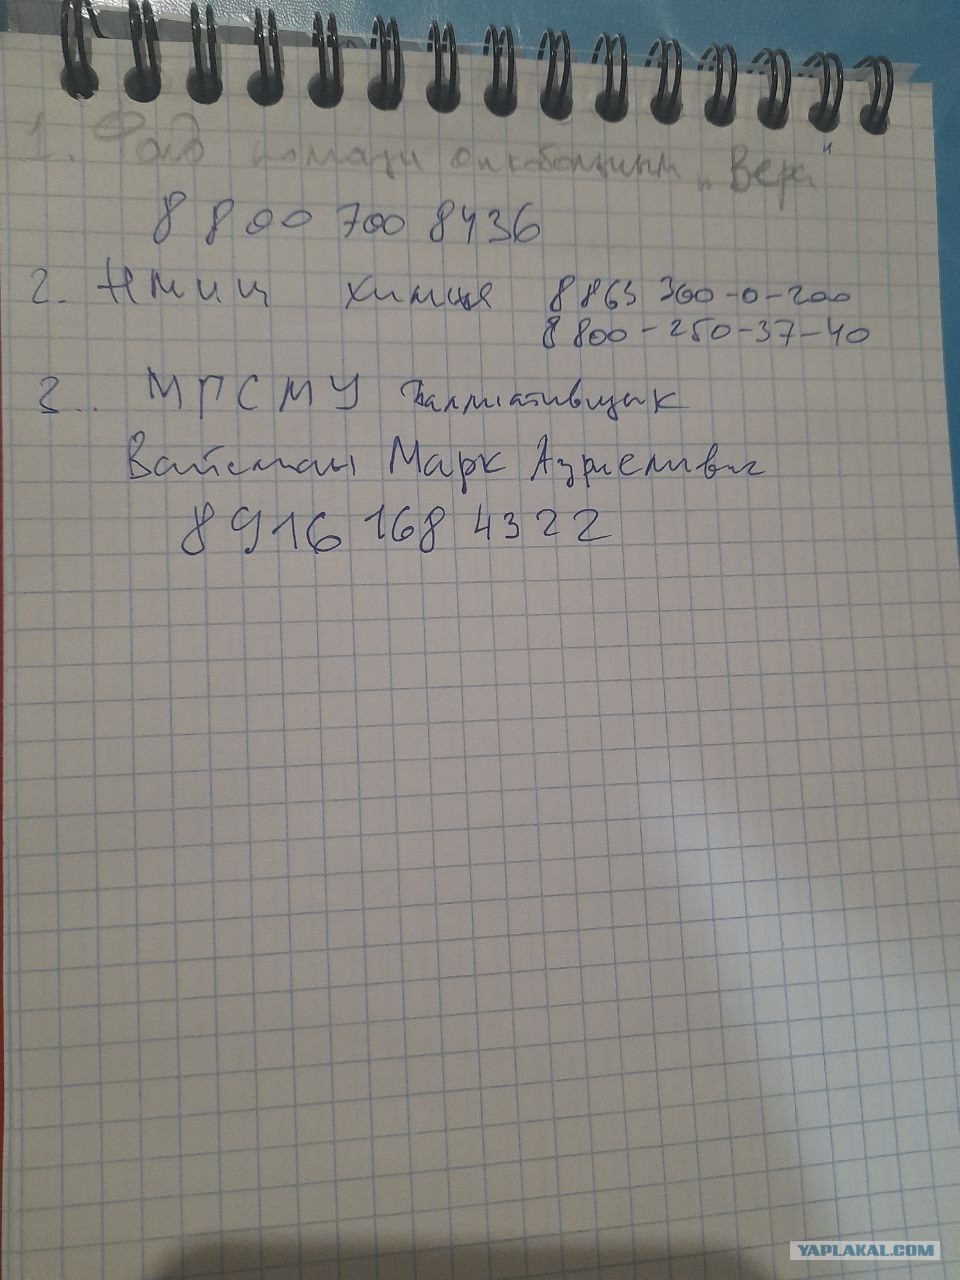 1. Фонд помощи онкобольным "Вера"
8 800 700 8436
2. НМИЦ Химия 8 863 300-0-200
8 800-250-37-40
3. МГСМУ Паллиативщик
Вайсман Марк Азриелвич
8 916 168 4322
YAPLAKAL.COM